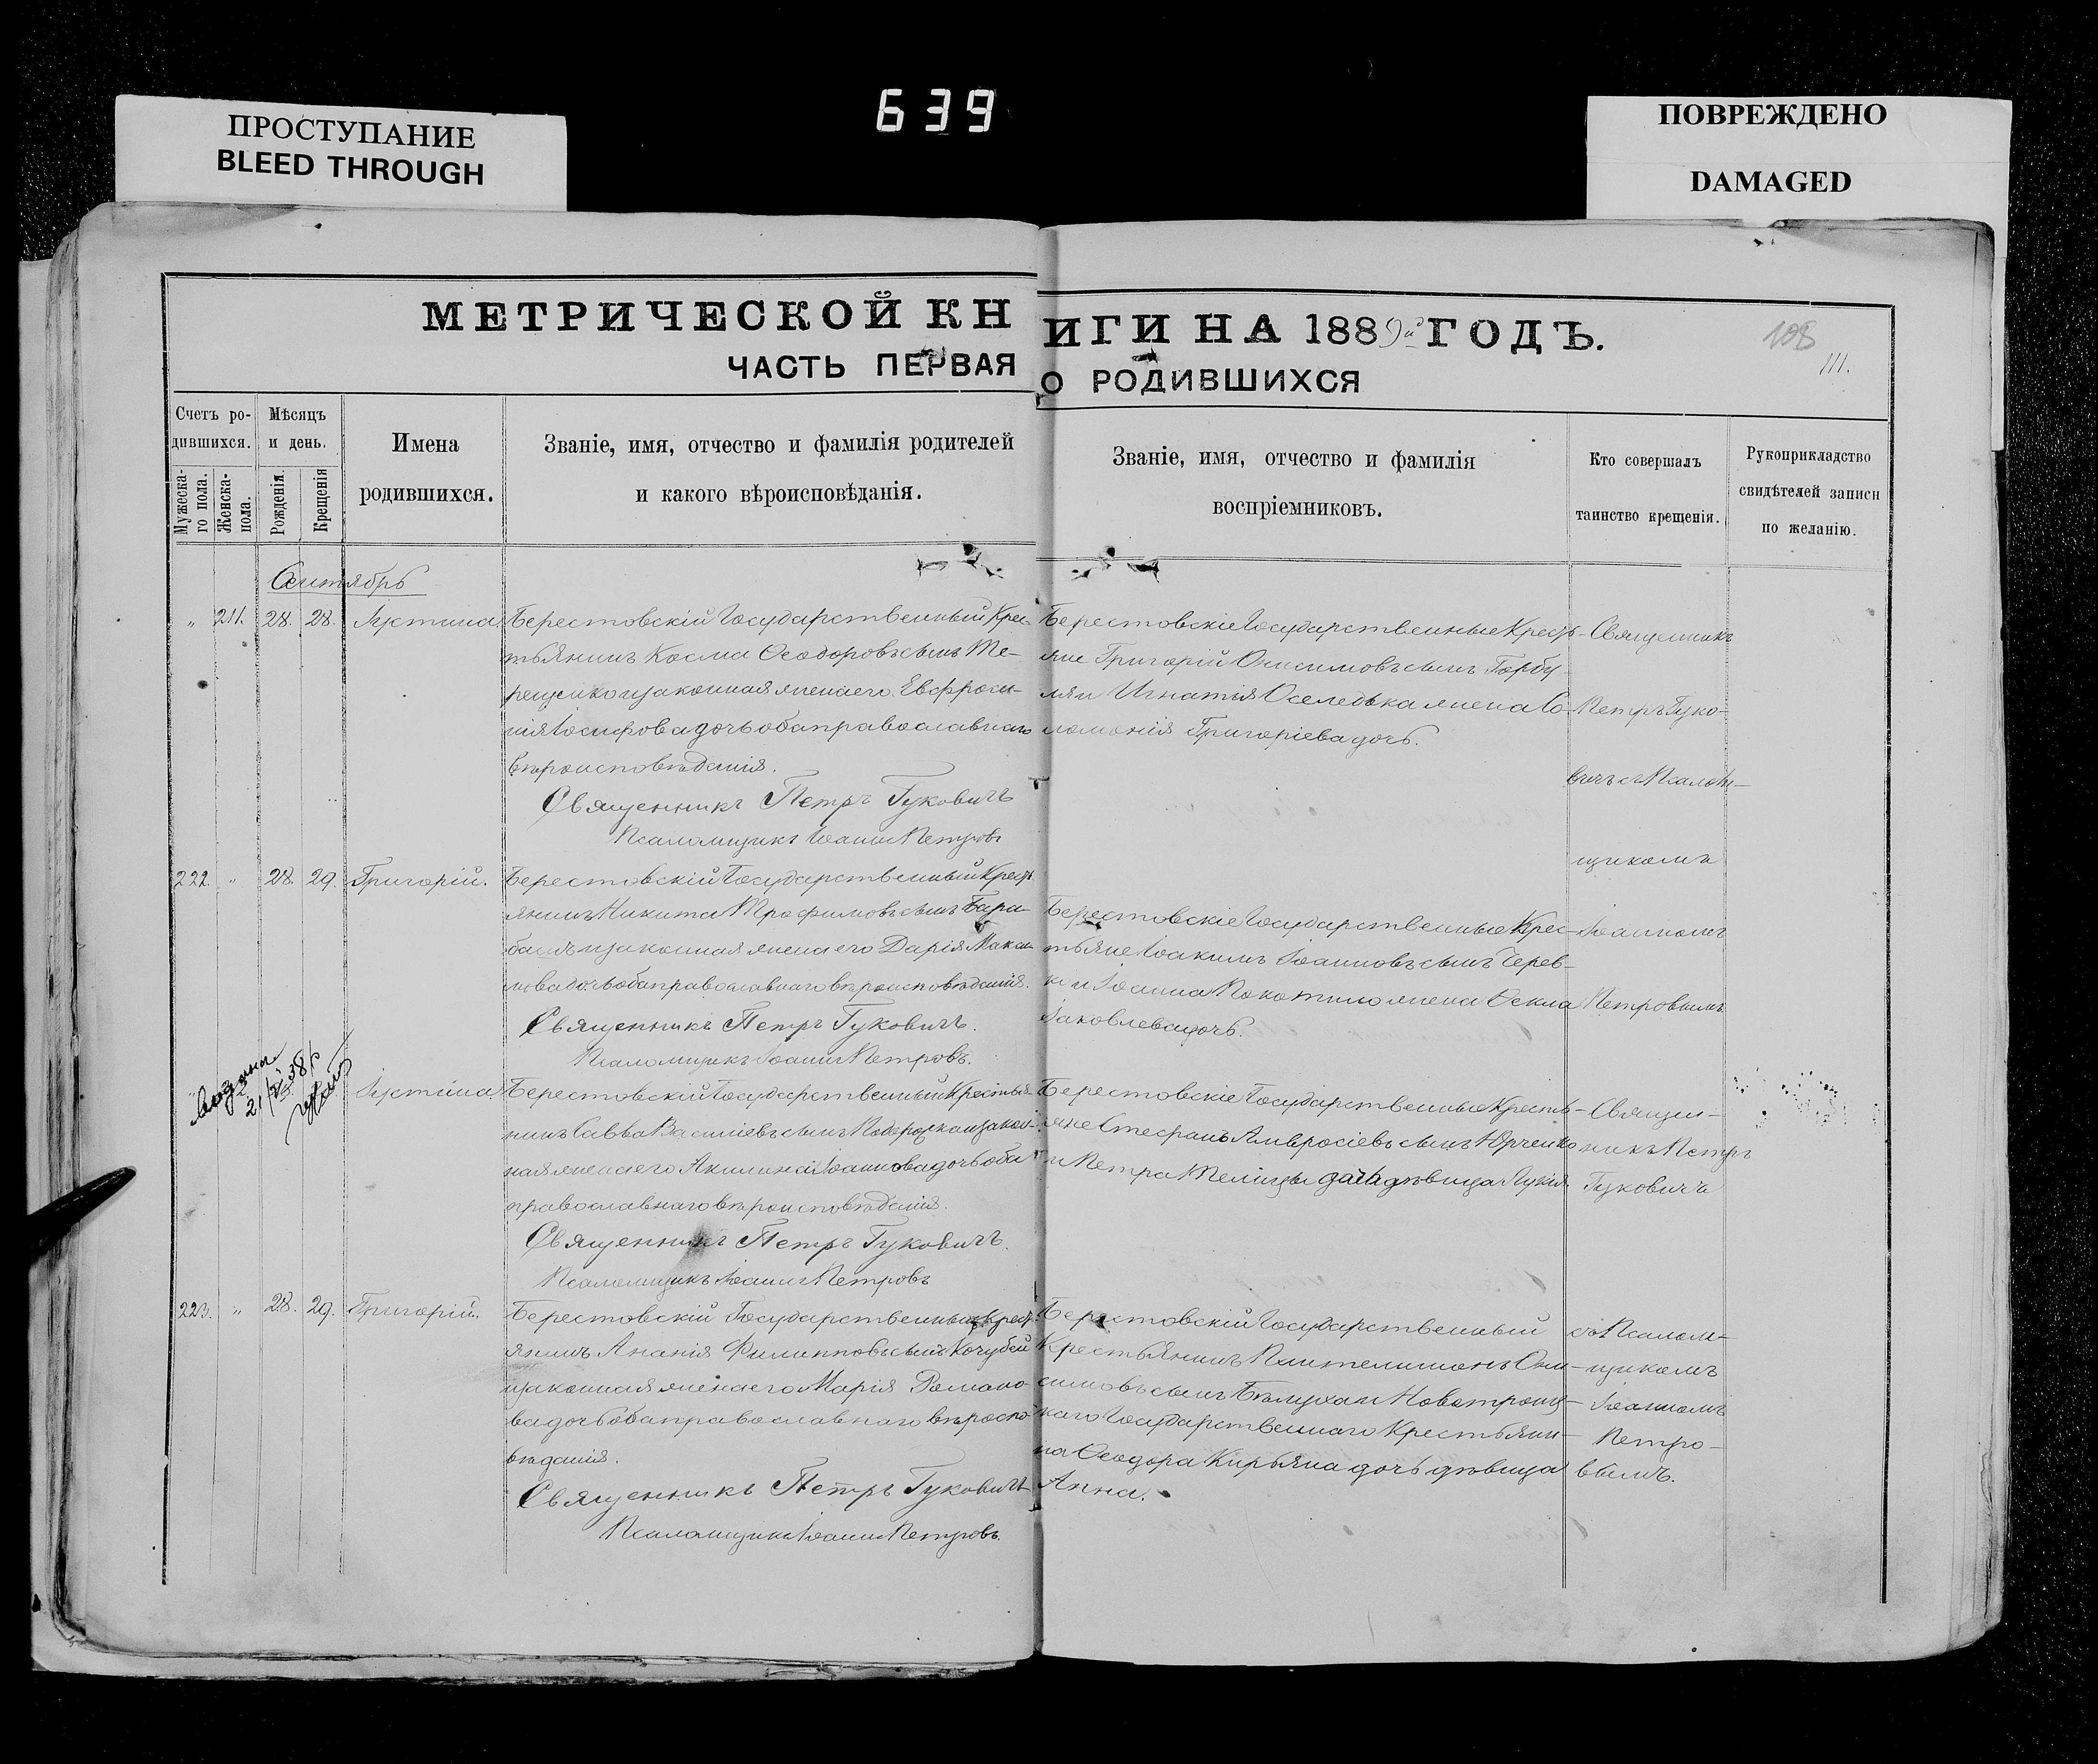 639
ПРОСТУПАНИЕ
BLEED THROUGH
ПОВРЕЖДЕНО
DAMAGED
МЕТРИЧЕСКОЙ КНИГИ НА 1889й ГОДЪ.
ЧАСТЬ ПЕРВАЯ О РОДИВШИХСЯ
108
111.
Счетъ ро-
дившихся.
Мужеска-
го пола.
Женска-
пола.
Мѣсяцъ
и день.
Рожденія.
Крещенія
Имена
родившихся.
Званіе, имя, отчество и фамилія родителей
и какого вѣроисповѣданія.
Званіе, имя, отчество и фамилія
воспріемниковъ.
Кто совершалъ
таинство крещенія.
Рукоприкладство
свидѣтелей записи
по желанію.
Сентябрь
" 211. 28. 28. Іустина
Берестовскій Государственный Крес-
тьянинъ Косма Ѳеодоровъ сынъ Те-
рещенко и законная жена его Евфроси-
нія Іосифова дочь оба православнаго
вѣроисповѣданія.
Священникъ Петръ Гуковичъ
Псаломщикъ Іоаннъ Петровъ
Берестовскіе Государственные Кресть-
яне Григорій Онисимовъ сынъ Горбу-
ля и Игнатія Оселедька жена Со-
ломонія Григоріева дочь.
Священникъ
Петръ Гуко-
вичъ съ Псалом-
щикомъ
Іоанномъ
Петровымъ
222. " 28. 29. Григорій.
Берестовскій Государственный Кресть
янинъ Никита Трофимовъ сынъ Бара-
башъ и законная жена его Дарія Макси-
мова дочь оба православнаго вѣроисповѣданія.
Священникъ Петръ Гуковичъ.
Псаломщикъ Іоаннъ Петровъ.
Берестовскіе Государственные Крес-
тьяне Іоакимъ Іоанновъ сынъ Черев-
ко и Іоанна Покотило жена Ѳекла
Іаковлева дочь.
21/VI 38
Іустина
Берестовскій Государственный Крестья-
нинъ Савва Василіевъ сынъ и закон-
ная жена его Акилина Іоаннова дочь оба
православнаго вѣроисповѣданія.
Священникъ Петръ Гуковичъ.
Псаломщикъ Іоаннъ Петровъ
Берестовскіе Государственные Кресть-
яне Стефанъ Амвросіевъ сынъ Юрченко
и Петра Телицы дочь дѣвица Лукія
Священ-
никъ Петръ
Гуковичъ
съ Псалом-
щикомъ
Іоанномъ
Петро-
вымъ.
223. " 28. 29. Григорій.
Берестовскій Государственный Кресть
янинъ Ананія Филипповъ сынъ Кочубей
и законная жена его Марія Романо-
ва дочь оба православнаго вѣроиспо-
вѣданія.
Священникъ Петръ Гуковичъ
Псаломщикъ Іоаннъ Петровъ.
Берестовскій Государственный
Крестьянинъ Пантелимонъ Они-
симовъ сынъ Бѣлуха и Новотроиц-
каго Государственнаго Крестьяни-
на Ѳеодора Кирьяна дочь дѣвица
Анна.